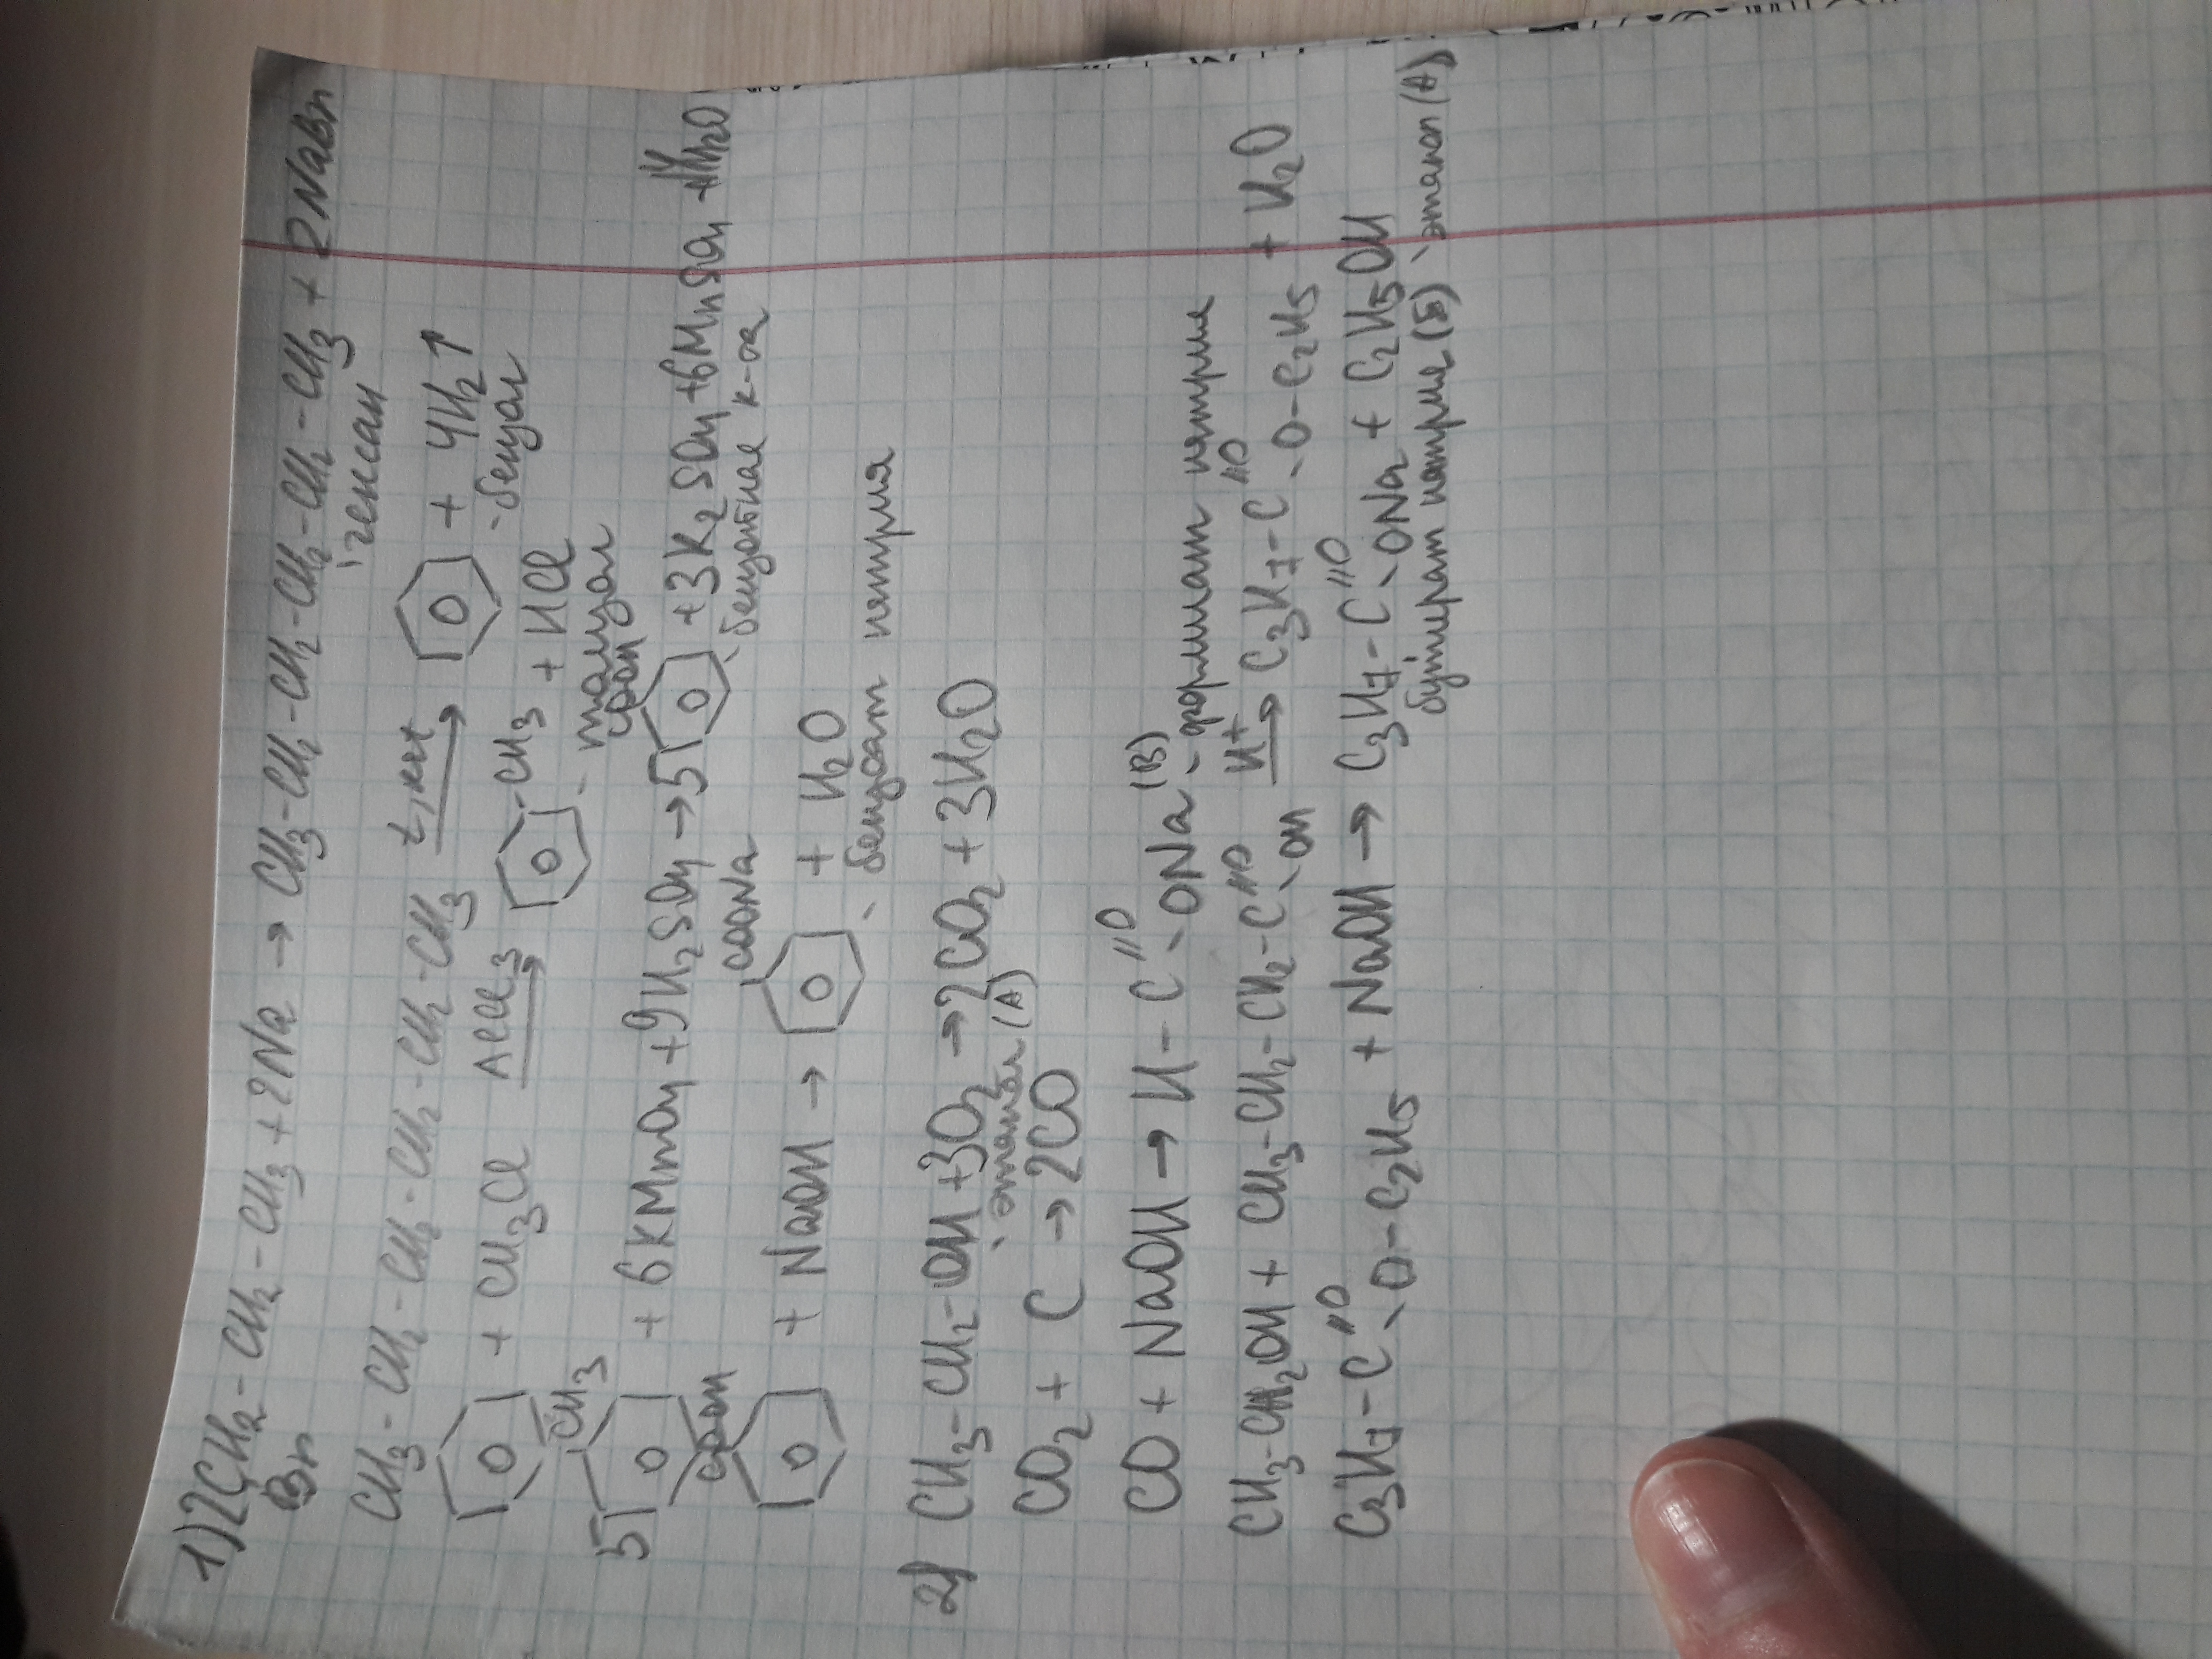 1) 2CH₂-CH₂-CH₃ + 2Na → CH₃-CH₂-CH₂-CH₂-CH₂-CH₃ + 2NaBr
Br
гексан
CH₃-CH₂-CH₂-CH₂-CH₂-CH₃ t, kat → + 4H₂↑
-бензол
+ CH₃Cl AlCl₃ → -CH₃ + HCl
- толуол
CH₃ COOH
5 + 6KMnO₄ + 9H₂SO₄ → 5 + 3K₂SO₄ + 6MnSO₄ + 14H₂O
бензойная к-та
COOH COONa
+ NaOH → + H₂O
- бензоат натрия
2) CH₃-CH₂-OH + 3O₂ → 2CO₂ + 3H₂O
этанол (А)
CO₂ + C → 2CO
CO + NaOH → H-C=O-ONa (В) - формиат натрия
CH₃-CH₂OH + CH₃-CH₂-CH₂-C=O-OH H⁺ → C₃H₇-C=O-O-C₂H₅ + H₂O
C₃H₇-C=O-O-C₂H₅ + NaOH → C₃H₇-C=O-ONa + C₂H₅OH
бутират натрия (Б) этанол (А)